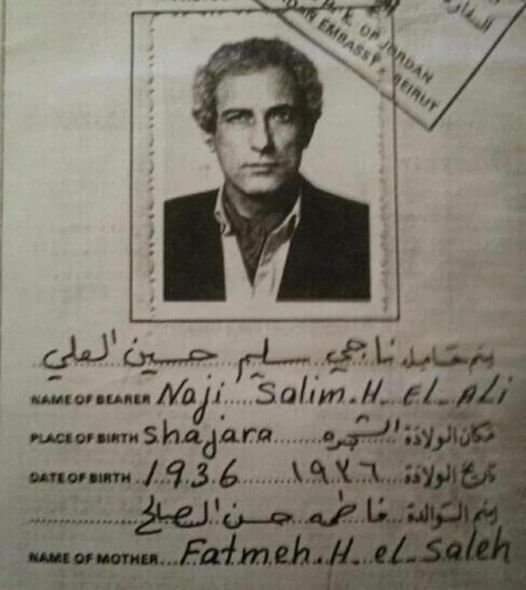 السفارة
H.K. OF JORDAN
JORDAN EMBASSY - BEIRUT
إسم حامله ناجي سليم حسين العلي
NAME OF BEARER Naji Salim.H. EL ALi
PLACE OF BIRTH Shajara الشجره مكان الولادة
DATE OF BIRTH 1936 ١٩٣٦ تاريخ الولادة
إسم الوالدة فاطمه حسن الصالح
NAME OF MOTHER Fatmeh.H. eL Saleh